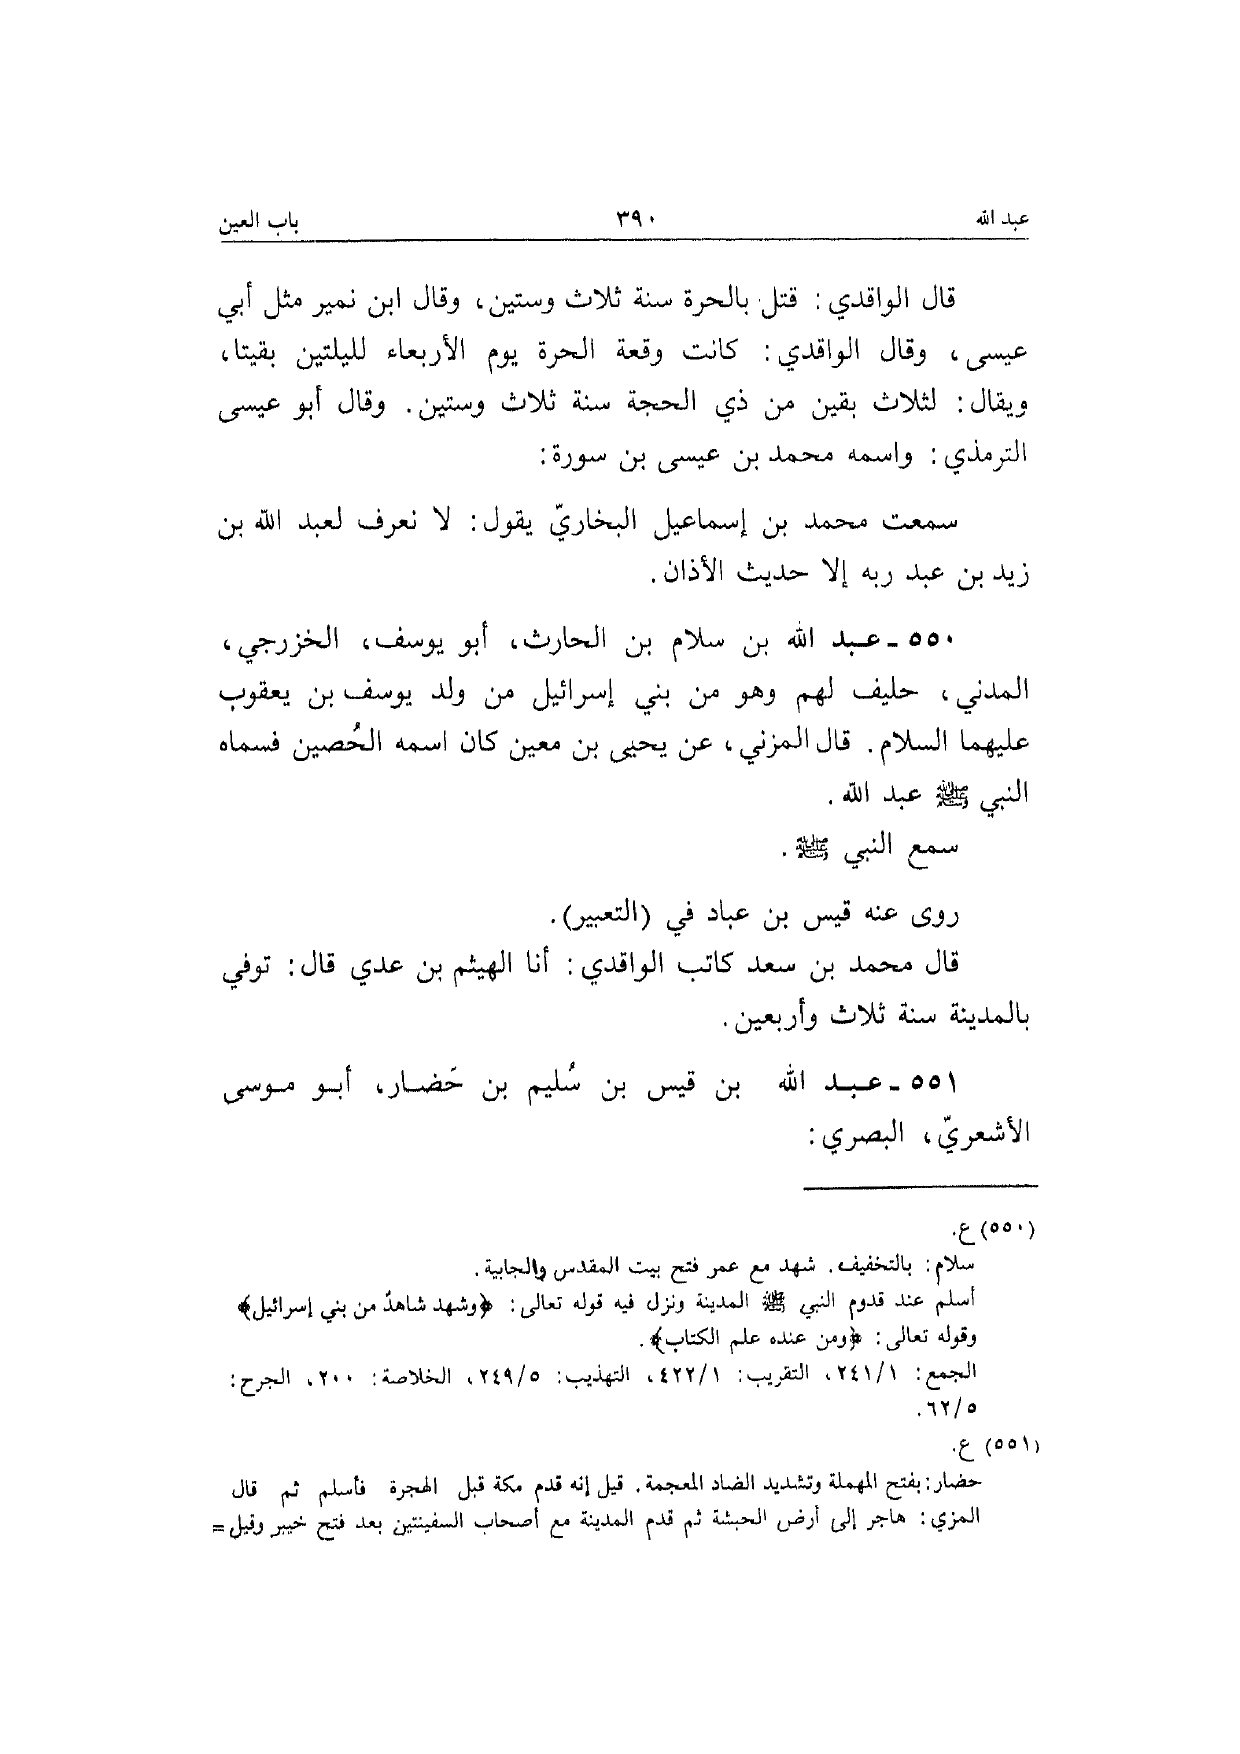 عبد الله ٣٩٠ باب العين
قال الواقدي: قتل بالحرة سنة ثلاث وستين، وقال ابن نمير مثل أبي
عيسى، وقال الواقدي: كانت وقعة الحرة يوم الأربعاء لليلتين بقيتا،
ويقال: لثلاث بقين من ذي الحجة سنة ثلاث وستين. وقال أبو عيسى
الترمذي: واسمه محمد بن عيسى بن سورة:
سمعت محمد بن إسماعيل البخاريّ يقول: لا نعرف لعبد الله بن
زيد بن عبد ربه إلا حديث الأذان.
٥٥٠ ـ عبد الله بن سلام بن الحارث، أبو يوسف، الخزرجي،
المدني، حليف لهم وهو من بني إسرائيل من ولد يوسف بن يعقوب
عليهما السلام. قال المزني، عن يحيى بن معين كان اسمه الحُصين فسماه
النبي ﷺ عبد الله.
سمع النبي ﷺ.
روى عنه قيس بن عباد في (التعبير).
قال محمد بن سعد كاتب الواقدي: أنا الهيثم بن عدي قال: توفي
بالمدينة سنة ثلاث وأربعين.
٥٥١ ـ عبد الله بن قيس بن سُليم بن حَضار، أبو موسى
الأشعريّ، البصري:
(٥٥٠) ع.
سلام: بالتخفيف. شهد مع عمر فتح بيت المقدس والجابية.
أسلم عند قدوم النبي ﷺ المدينة ونزل فيه قوله تعالى: ﴿وشهد شاهدٌ من بني إسرائيل﴾
وقوله تعالى: ﴿ومن عنده علم الكتاب﴾.
الجمع: ٢٤١/١، التقريب: ٤٢٢/١، التهذيب: ٢٤٩/٥، الخلاصة: ٢٠٠، الجرح:
٦٢/٥.
(٥٥١) ع.
حضار: بفتح المهملة وتشديد الضاد المعجمة. قيل إنه قدم مكة قبل الهجرة فأسلم ثم قال
المزي: هاجر إلى أرض الحبشة ثم قدم المدينة مع أصحاب السفينتين بعد فتح خيبر وقيل=